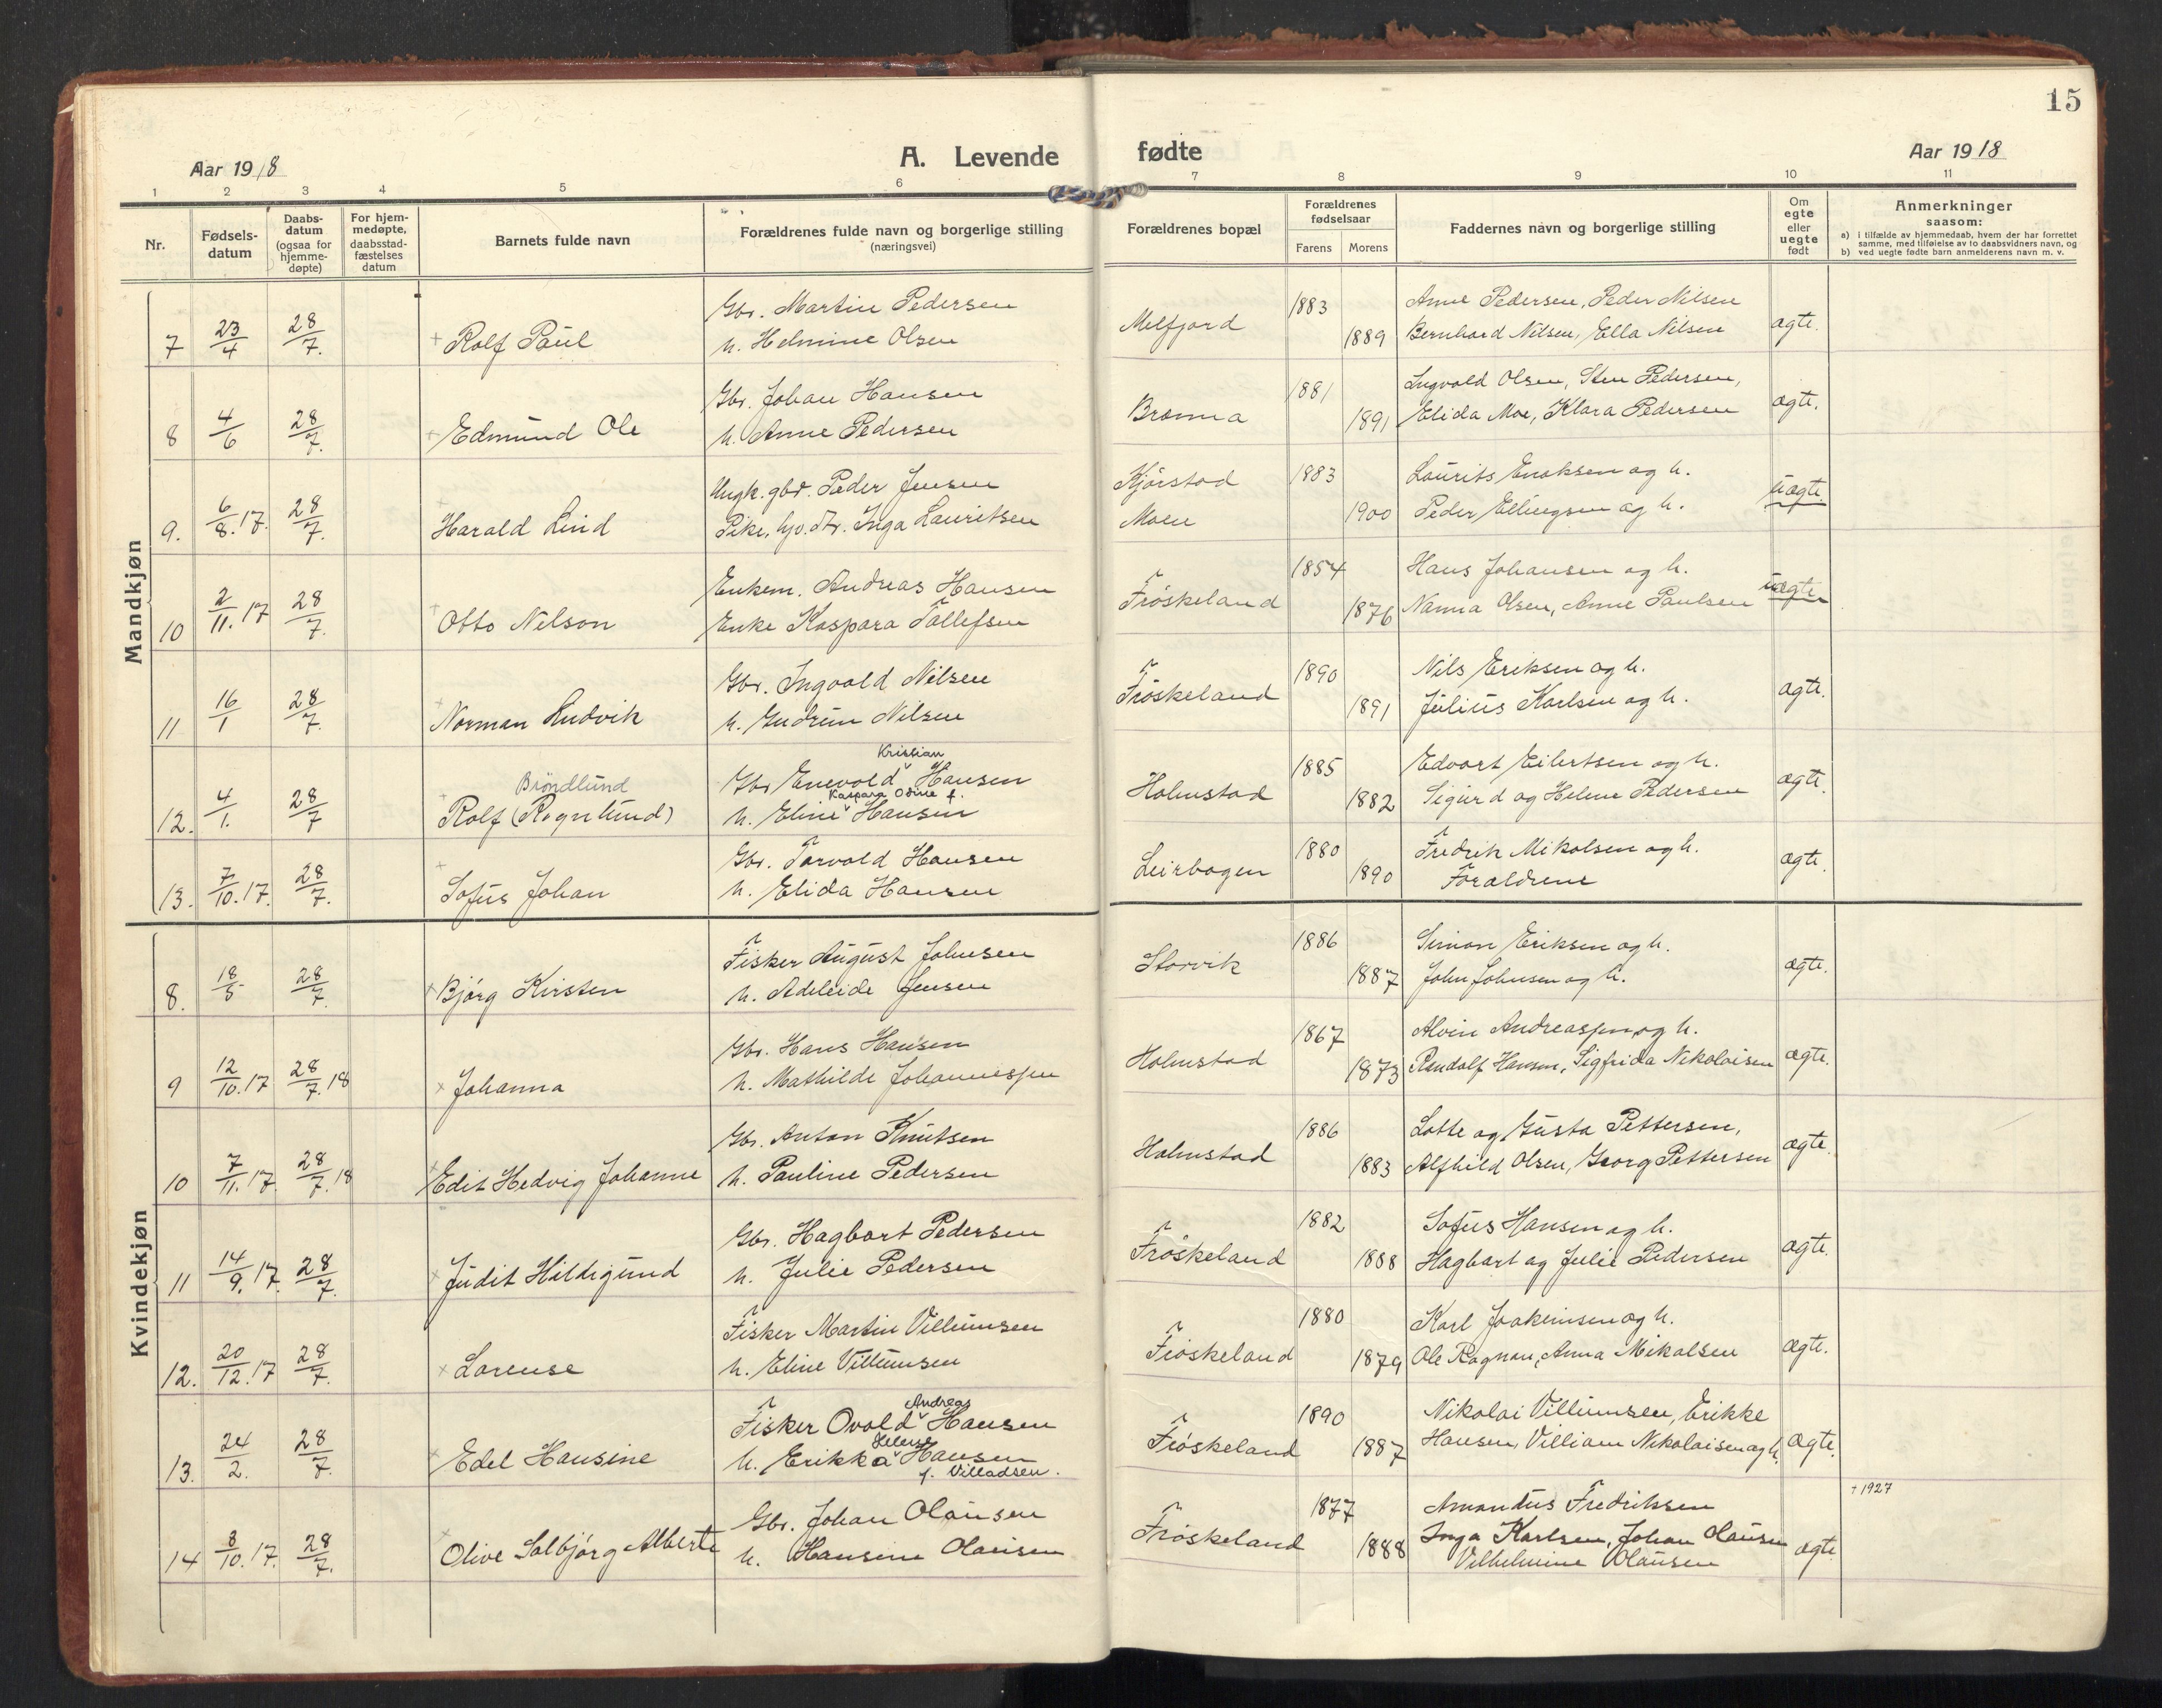 15
Aar 1918
A. Levende fødte
Aar 1918
1 2 3 4 5 6 7 8 9 10 11
Nr.
Fødsels-
datum
Daabs-
datum
(ogsaa for
hjemme-
døpte)
For hjem-
medøpte,
daabsstad-
fæstelses
datum
Barnets fulde navn
Forældrenes fulde navn og borgerlige stilling
(næringsvei)
Forældrenes bopæl
Forældrenes
fødselsaar
Farens Morens
Faddernes navn og borgerlige stilling
Om
egte
eller
uegte
født
Anmerkninger
saasom:
a) i tilfælde av hjemmedaab, hvem der har forrettet
samme, med tilføielse av to daabsvidners navn, og
b) ved uegte fødte barn anmelderens navn m. v.
Mandkjøn
Gbr. Martin Pedersen 1883 Anne Pedersen, Peder Nilsen
7 23/4 28/7. Rolf Paul h. Helmine Olsen Melfjord 1889 Bernhard Nilsen, Ella Nilsen ægte.
Gbr. Johan Hansen 1881 Ingvald Olsen, Sten Pedersen,
8 4/6 28/7. Edmund Ole h. Anne Pedersen Brænna 1891 Elida Moe, Klara Pedersen ægte.
Ungk. gbd. Peder Jensen Kjørstad 1883 Laurits Enoksen og h.
9. 6/8.17. 28/7. Harald Lind Pike, hjv. dtr. Inga Lauritsen Moen 1900 Peder Ellingsen og h. uægte.
Enkem. Andreas Hansen 1854 Hans Johansen og h.
10 2/11.17 28/7. Otto Nelson Enke Kaspara Tollefsen Frøskeland 1876 Nanna Olsen, Anne Paulsen uægte
Gbr. Ingvald Nilsen 1890 Nils Eriksen og h.
11 16/1 28/7. Norman Ludvik h. Gudrun Nilsen Frøskeland 1891 Julius Karlsen og h. ægte.
Kristian
Brøndlund Gbr Enevold Hansen 1885 Edvart Eilertsen og h.
Kaspara Odine f.
12. 4/1. 28/7 Rolf (Rognlund) h. Eline Hansen Holmstad 1882 Sigurd og Helene Pedersen ægte.
Gbr. Torvald Hansen 1880 Fredrik Mikalsen og h.
13. 7/10.17. 28/7. Sofus Johan h. Elida Hansen Leirbogen 1890 Forældrene ægte.
Kvindekjøn
Fisker August Johnsen 1886 Simon Eriksen og h.
8. 18/5 28/7 Bjørg Kirsten h. Adeleide Jensen Storvik 1887 John Johnsen og h. ægte.
Gbr. Hans Hansen 1867 Alvin Andreassen og h.
9 12/10.17 28/7.18 Johanna h. Mathilde Johannessen Holmstad 1873 Randolf Hansen, Sigfrida Nikolaisen ægte.
Gbr. Anton Knutsen 1886 Lotte og Gusta Pettersen,
10 7/11.17. 28/7.18 Edit Hedvig Johanne h. Pauline Pedersen Holmstad 1883 Alfhild Olsen, Georg Pettersen ægte.
Gbr. Hagbart Pedersen 1882 Sofus Hansen og h.
11 14/9.17. 28/7. Judit Hildigund h. Julie Pedersen Frøskeland 1888 Hagbart og Julie Pedersen ægte.
Fisker Martin Villumsen 1880 Karl Joakimsen og h.
12. 20/12.17 28/7. Lorense h. Eline Villumsen Frøskeland 1879 Ole Ragnau, Anna Mikalsen ægte.
Andreas
Fisker Ovold Hansen 1890 Nikolai Villumsen, Erikke
Helene
13. 24/2. 28/7. Edel Hansine h. Erikka Hansen Frøskeland 1887 Hansen, Villiam Nikolaisen og h. ægte.
f. Villadsen.
† 1927
Gbr. Johan Olausen 1877 Amandus Fredriksen
14 8/10.17. 28/7. Olive Solbjørg Alberte h. Hansine Olausen Frøskeland 1888 Inga Karlsen, Johan Olausen ægte
Vilhelmine Olausen